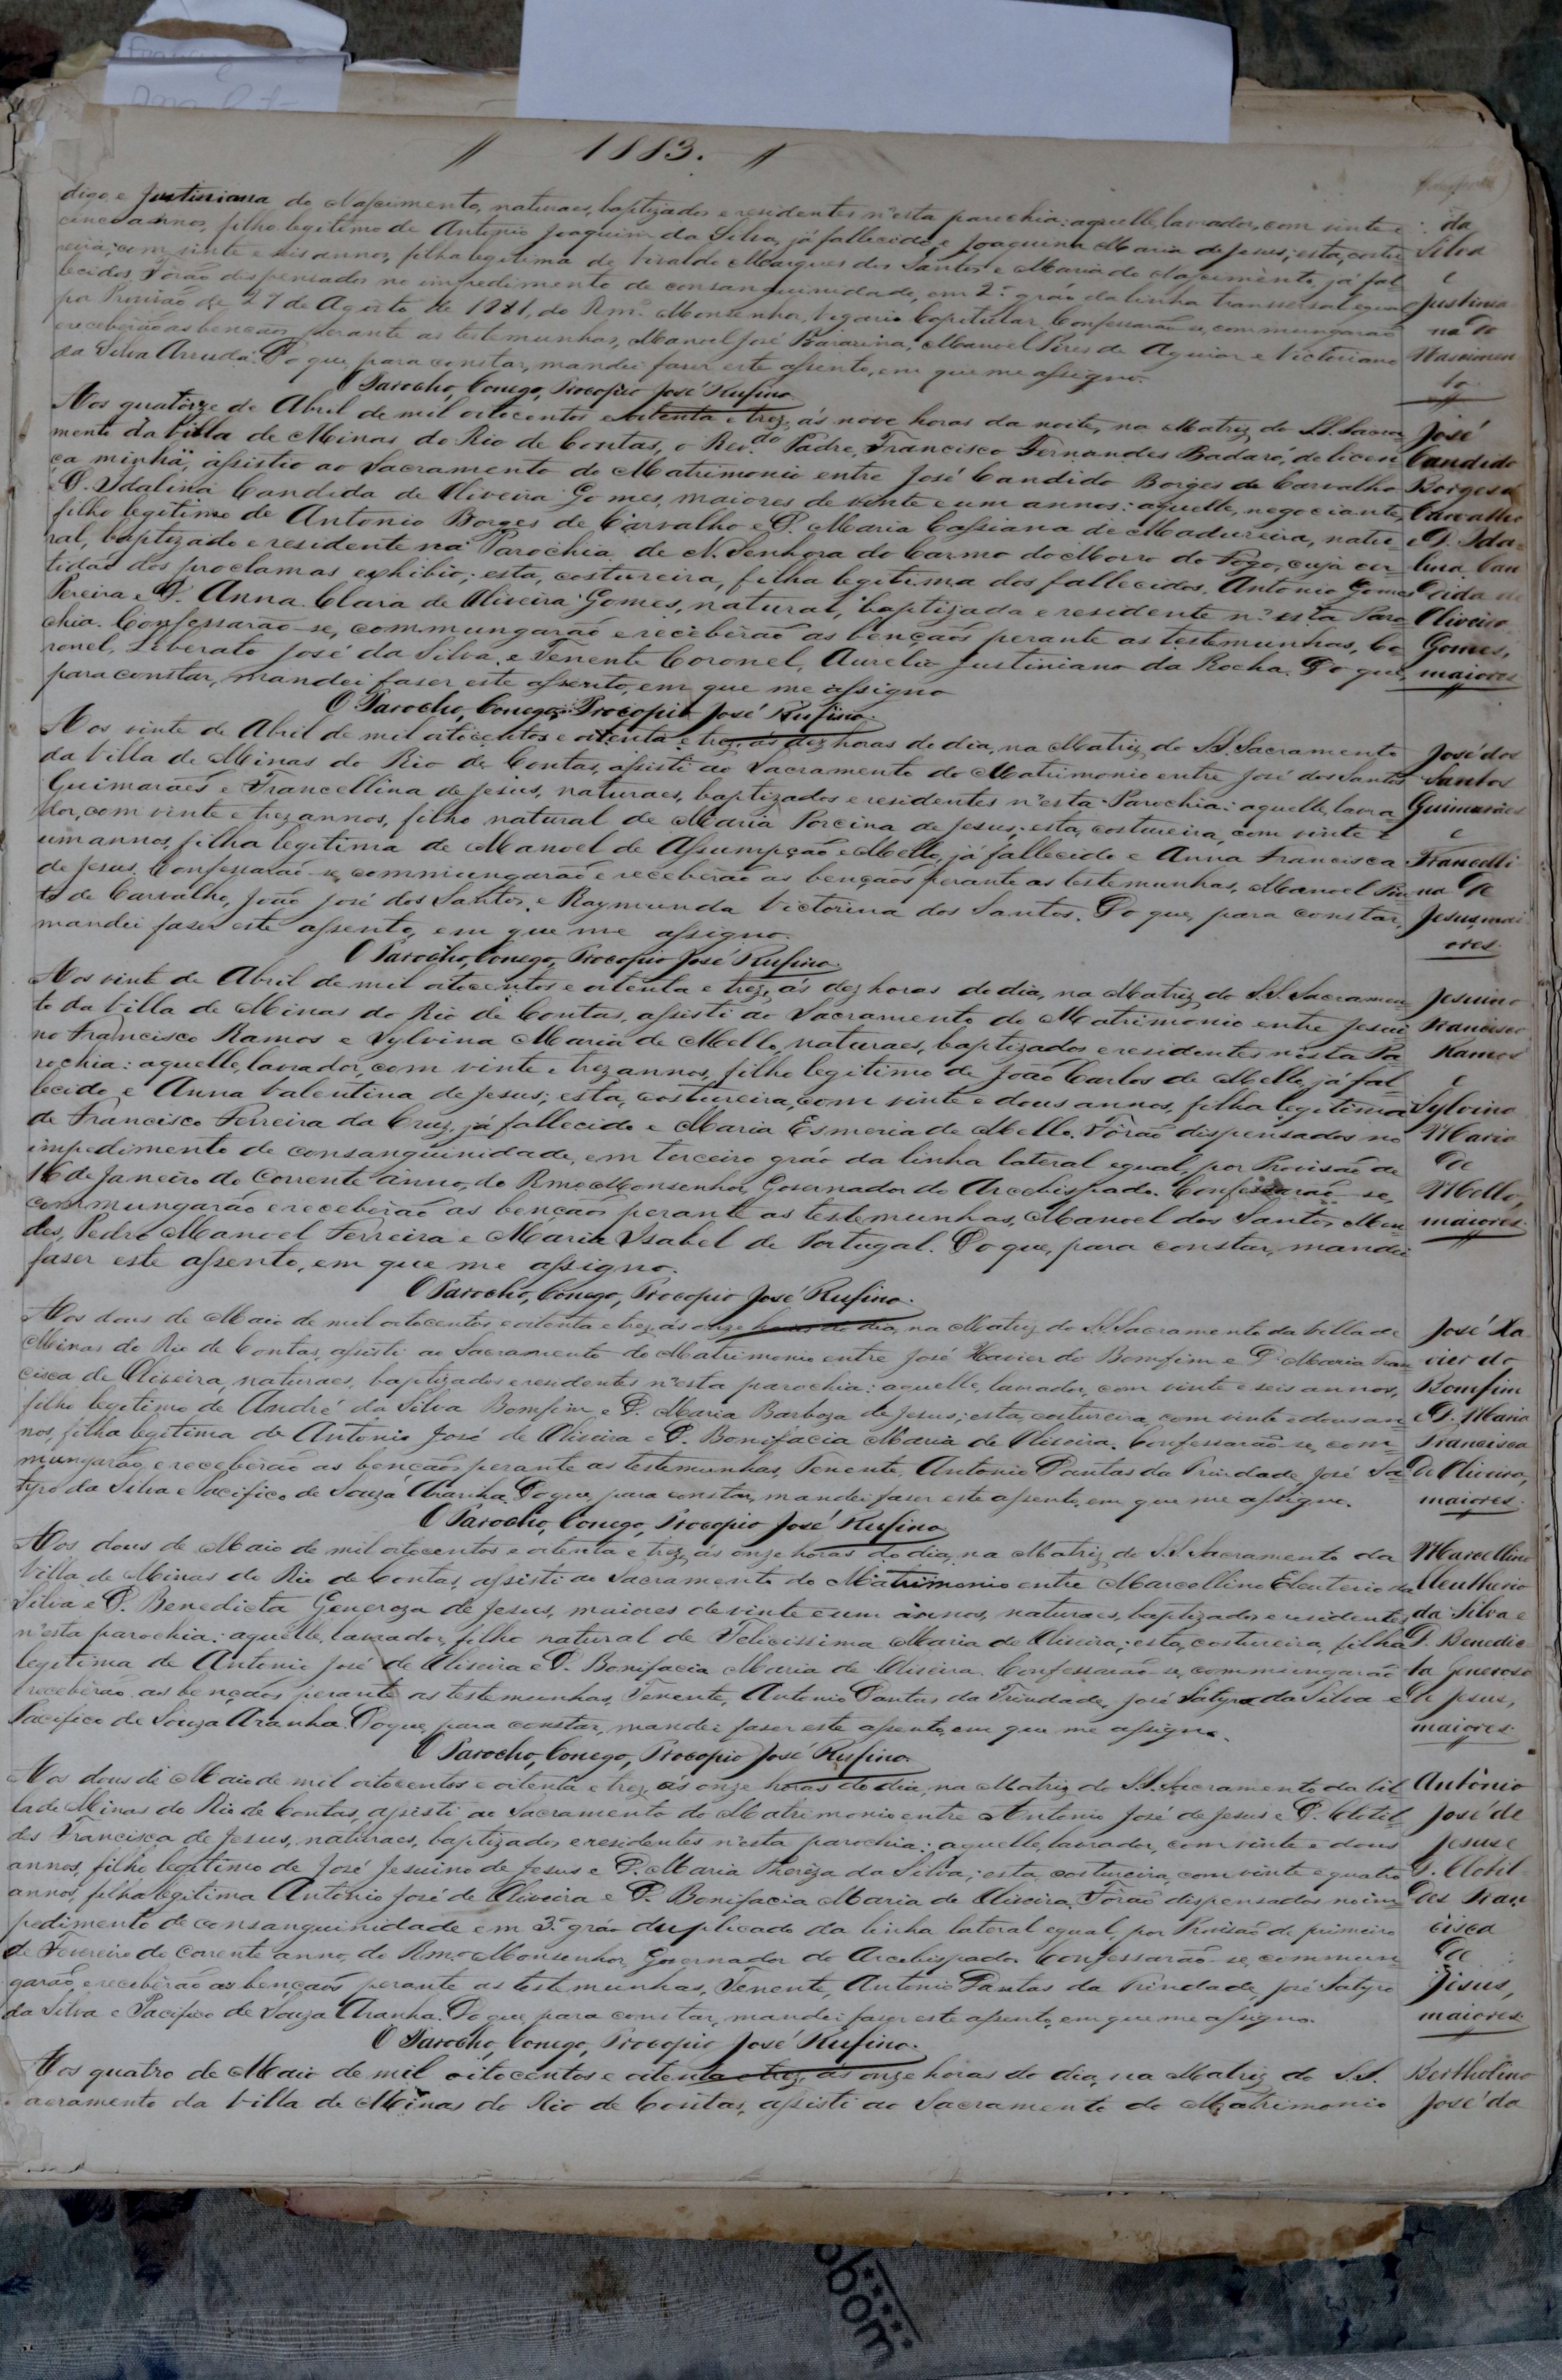 // 1883. //
digo, e Justiniana do Nascimento, naturaes, baptizados e residentes n'esta parochia: aquelle, lavrador, com vinte e
cinco annos, filho legitimo de Antonio Joaquim da Silva, já fallecido, e Joaquina Maria de Jesus; esta, costu
reira, com vinte e seis annos, filha legitima de Vivaldo Marques dos Santos e Maria do Nascimento, já fal
lecidos. Forão dispensados no impedimento de consanguinidade, em 2º gráo da linha transversal egual
por Provisão de 27 de Agosto de 1881, do Rmº Monsenhor, Vigario Capitular. Confessarão-se, commungarão
e receberão as bençãos perante as testemunhas, Manoel José, Manoel Pires de Aguiar e Victoriano
da Silva Arruda. Do que, para constar, mandei faser este assento, em que me assigno.
O Parocho, Conego, Procopio José Rufino
da
Silva
e
Justinia
na do
Nascimen
to
Aos quatorze de Abril de mil oitocentos e oitenta e trez, ás nove horas da noite, na Matriz do S.S. Sacra
mento da Villa de Minas do Rio de Contas, o Rev.do Padre, Francisco Fernandes Badaró, de licen
ça minha, assistio ao Sacramento do Matrimonio entre José Candido Borges de Carvalho
e D. Idalina Candida de Oliveira Gomes, maiores de vinte e um annos: aquelle, negociante,
filho legitimo de Antonio Borges de Carvalho e D. Maria Cassiana de Madureira, natu-
ral, baptizado e residente na Parochia de N. Senhora do Carmo do Morro do Fogo, cuja cer-
tidão dos proclamas exhibio; esta, costureira, filha legitima dos fallecidos, Antonio Gomes
Pereira e D. Anna Clara de Oliveira Gomes, natural, baptizada e residente n'esta Paro
chia. Confessarão-se, commungarão e receberão as bençãos perante as testemunhas, Co
ronel, Liberato José da Silva, e Tenente Coronel, Aurelio Justiniano da Rocha. Do que,
para constar, mandei faser este assento, em que me assigno
O Parocho, Conego, Procopio José Rufino.
José
Candido
Borges de
Carvalho
e D. Ida-
lina Can
dida de
Oliveira
Gomes,
maiores
Aos vinte de Abril de mil oitocentos e oitenta e trez, ás dez horas do dia, na Matriz do S.S. Sacramento
da Villa de Minas do Rio de Contas, assisti ao Sacramento do Matrimonio entre José dos Santos
Guimarães e Francellina de Jesus, naturaes, baptizados e residentes n'esta Parochia: aquelle, lavra
dor, com vinte e trez annos, filho natural de Maria Porcina de Jesus; esta, costureira, com vinte e
um annos, filha legitima de Manoel de Assumpção e Mello, já fallecido e Anna Francisca
de Jesus. Confessarão-se, commungarão e receberão as bençãos perante as testemunhas, Manoel Pin
to de Carvalho, João José dos Santos, e Raymunda Victorina dos Santos. Do que, para constar,
mandei faser este assento, em que me assigno.
O Parocho, Conego, Procopio José Rufino.
José dos
Santos
Guimarães
e
Francelli
na de
Jesus, mai
ores.
Aos vinte de Abril de mil oitocentos e oitenta e trez, ás dez horas do dia, na Matriz do S.S. Sacramen
to da Villa de Minas do Rio de Contas, assisti ao Sacramento do Matrimonio entre Jesui
no Francisco Ramos e Sylvina Maria de Mello, naturaes, baptizados e residentes n'esta Pa
rochia: aquelle, lavrador, com vinte e trez annos, filho legitimo de João Carlos de Mello, já fal-
lecido e Anna Valentina de Jesus; esta, costureira, com vinte e dous annos, filha legitima
de Francisco Ferreira da Cruz, já fallecido e Maria Esmeria de Mello. Forão dispensados no
impedimento de consanguinidade, em terceiro gráo da linha lateral egual, por Provisão de
16 de Janeiro do corrente anno, do Rmo Monsenhor, Governador do Arcebispado. Confessarão-se,
commungarão e receberão as bençãos perante as testemunhas, Manoel dos Santos Men
des, Pedro Manoel Ferreira e Maria Isabel de Portugal. Do que, para constar, mandei
faser este assento, em que me assigno.
O Parocho, Conego, Procopio José Rufino.
Jesuino
Francisco
Ramos
e
Sylvina
Maria
de
Mello,
maiores.
Aos dous de Maio de mil oitocentos e oitenta e trez, ás onze horas do dia, na Matriz do S.S. Sacramento da Villa de
Minas do Rio de Contas, assisti ao Sacramento do Matrimonio entre José Xavier do Bomfim e D. Maria Fran
cisca de Oliveira, naturaes, baptizados e residentes n'esta parochia: aquelle, lavrador, com vinte e seis annos,
filho legitimo de André da Silva Bomfim e D. Maria Barboza de Jesus; esta, costureira, com vinte e dous an
nos, filha legitima de Antonio José de Oliveira e D. Bonifacia Maria de Oliveira. Confessarão-se, com
mungarão, e receberão as bençãos perante as testemunhas, Tenente, Antonio Dantas da Trindade, José Sa-
tyro da Silva e Pacifico de Souza Aranha. Do que, para constar, mandei faser este assento, em que me assigno.
O Parocho, Conego, Procopio José Rufino
José Xa
vier do
Bomfim
e D. Maria
Francisca
de Oliveira,
maiores.
Aos dous de Maio de mil oitocentos e oitenta e trez, ás onze horas do dia, na Matriz do S.S. Sacramento da
Villa de Minas do Rio de Contas, assisti ao Sacramento do Matrimonio entre Marcellino Eleuterio da
Silva e D. Benedicta Generoza de Jesus, maiores de vinte e um annos, naturaes, baptizados e residentes
n'esta parochia: aquelle, lavrador, filho natural de Felicissima Maria de Oliveira; esta, costureira, filha
legitima de Antonio José de Oliveira e D. Bonifacia Maria de Oliveira. Confessarão-se, commungarão
e receberão as bençãos perante as testemunhas, Tenente, Antonio Dantas da Trindade, José Satyro da Silva e
Pacifico de Souza Aranha. Do que, para constar, mandei faser este assento, em que me assigno.
O Parocho, Conego, Procopio José Rufino.
Marcellino
Eleutherio
da Silva e
D. Benedic
ta Generosa
de Jesus,
maiores.
Aos dous de Maio de mil oitocentos e oitenta e trez, ás onze horas do dia, na Matriz do S.S. Sacramento da Vil
la de Minas do Rio de Contas, assisti ao Sacramento do Matrimonio entre Antonio José de Jesus e D. Clotil-
des Francisca de Jesus, naturaes, baptizados e residentes n'esta parochia: aquelle, lavrador, com vinte e dous
annos, filho legitimo de José Jesuino de Jesus e D. Maria Thereza da Silva; esta, costureira, com vinte e quatro
annos, filha legitima Antonio José de Oliveira e D. Bonifacia Maria de Oliveira. Forão dispensados no im
pedimento de consanguinidade em 3º gráo duplicado da linha lateral egual, por Provisão de primeiro
de Fevereiro do corrente anno, do Rmo Monsenhor, Governador do Arcebispado. Confessarão-se, commun
garão, e receberão as bençãos perante as testemunhas, Tenente, Antonio Dantas da Trindade, José Satyro
da Silva e Pacifico de Souza Aranha. Do que, para constar, mandei faser este assento, em que me assigno.
O Parocho, Conego, Procopio José Rufino.
Antônio
José de
Jesus e
D. Clotil-
des Fran-
cisca
de
Jesus,
maiores.
Aos quatro de Maio de mil oitocentos e oitenta e trez, ás onze horas do dia, na Matriz do S.S.
acramento da Villa de Minas do Rio de Contas, assisti ao Sacramento do Matrimonio
Bertholino
José da